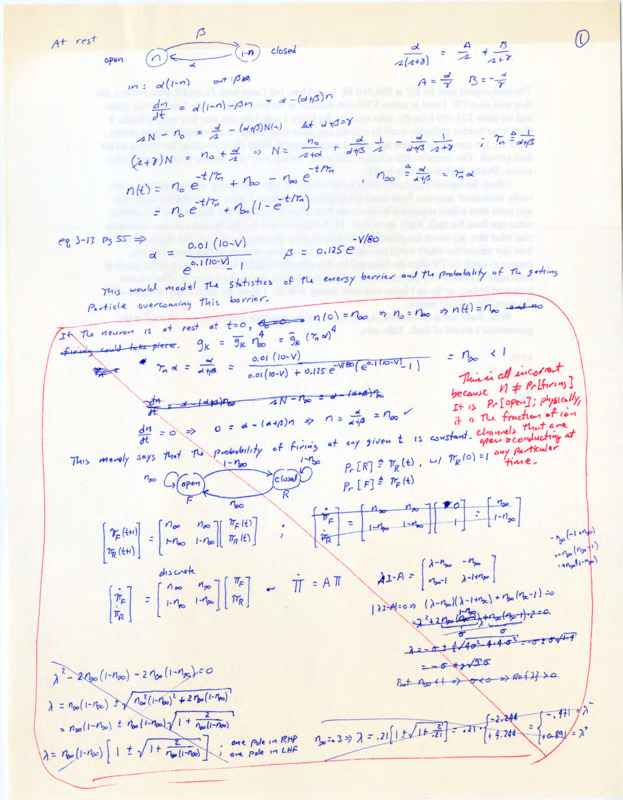 At rest
β
①
open
n
1-n
closed
α
α/(s(s+γ)) = A/s + B/(s+γ)
A = α/γ B = -α/γ
in: α(1-n) out: βn
dn/dt = α(1-n) - βn = α - (α+β)n
sN - n₀ = α/s - (α+β)N(s) let α+β = γ
(s+γ)N = n₀ + α/s ⇒ N = n₀/(s+α) + α/(α+β) 1/s - α/(α+β) 1/(s+γ) ; τₙ ≜ 1/(α+β)
n(t) = n₀ e^(-t/τₙ) + n∞ - n∞ e^(-t/τₙ) , n∞ ≜ α/(α+β) = τₙ α
= n₀ e^(-t/τₙ) + n∞ (1 - e^(-t/τₙ))
eq 3-13 pg 55 ⇒
α = 0.01 (10-V) / (e^(0.1(10-V)) - 1) β = 0.125 e^(-V/80)
This would model the statistics of the energy barrier and the probability of the gating
particle overcoming this barrier.
If the neuron is at rest at t=0, n(0) = n∞ ⇒ n₀ = n∞ ⇒ n(t) = n∞ and no
firing could take place. g_K = ḡ_K n∞⁴ = ḡ_K (τₙ α)⁴
τₙ α = α/(α+β) = 0.01 (10-V) / (0.01 (10-V) + 0.125 e^(-V/80) (e^(0.1(10-V)) - 1)) = n∞ < 1
This is all incorrect
because n ≠ Pr[firing]
It is Pr[open]; physically,
it is the fraction of ion
channels that are
open & conducting at
any particular
time.
dn/dt = α - (α+β)n∞ sN - n∞ = α - (α+β)n∞
dn/dt = 0 ⇒ 0 = α - (α+β)n ⇒ n = α/(α+β) = n∞ ✓
This merely says that the probability of firing at any given t is constant.
1-n∞
1-n∞
n∞
open
closed
F
R
n∞
Pr[R] ≜ π_R(t), w/ π_R(0) = 1
Pr[F] ≜ π_F(t)
[π_F(t+1) ; π_R(t+1)] = [n∞ n∞ ; 1-n∞ 1-n∞] [π_F(t) ; π_R(t)] ; [π̇_F ; π̇_R] = [n∞ n∞ ; 1-n∞ 1-n∞] [0 ; 1] = [n∞ ; 1-n∞]
discrete
[π̇_F ; π̇_R] = [n∞ n∞ ; 1-n∞ 1-n∞] [π_F ; π_R] or Π̇ = AΠ
λI-A = [λ-n∞ -n∞ ; n∞-1 λ-1+n∞]
-n∞(-1+n∞)
-n∞(n∞-1)
|λI-A| = 0 ⇒ (λ-n∞)(λ-1+n∞) + n∞(n∞-1) = 0
But n∞ < 1 ⇒ σ < 0 ⇒ Re{λ} > 0
λ² - 2n∞(1-n∞) - 2n∞(1-n∞) = 0
λ = n∞(1-n∞) ± √(n∞²(1-n∞)² + 2n∞(1-n∞))
= n∞(1-n∞) ± n∞(1-n∞) √(1 + 2/(n∞(1-n∞)))
λ = n∞(1-n∞) [1 ± √(1 + 2/(n∞(1-n∞)))] ; one pole in RHP
one pole in LHP
n∞ = .3 ⇒ λ = .21 [1 ± √(1 + 2/.21)] = .21 · {-2.244 ; +4.244} = {-.471 = λ⁻ ; +0.891 = λ⁺}